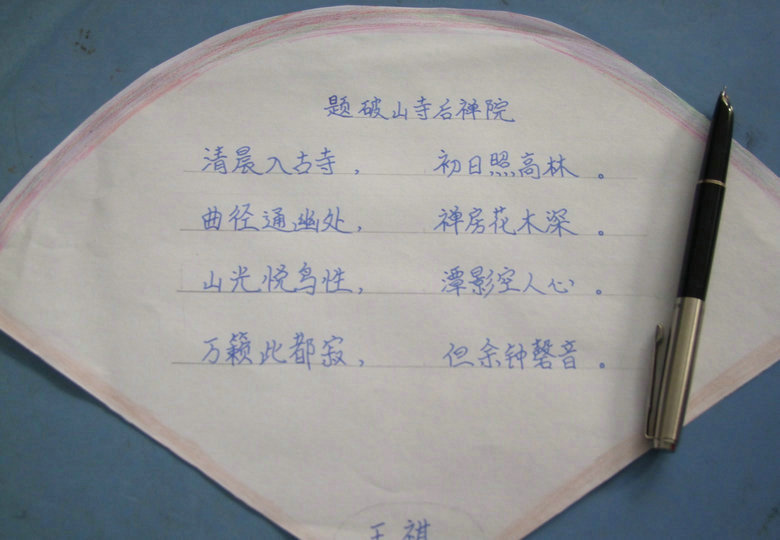 题破山寺后禅院
清晨入古寺， 初日照高林。
曲径通幽处， 禅房花木深。
山光悦鸟性， 潭影空人心。
万籁此都寂， 但余钟磬音。
王祺